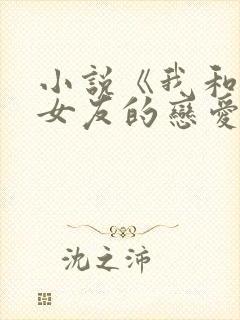 小說《我和
女友的戀愛
沈之沛